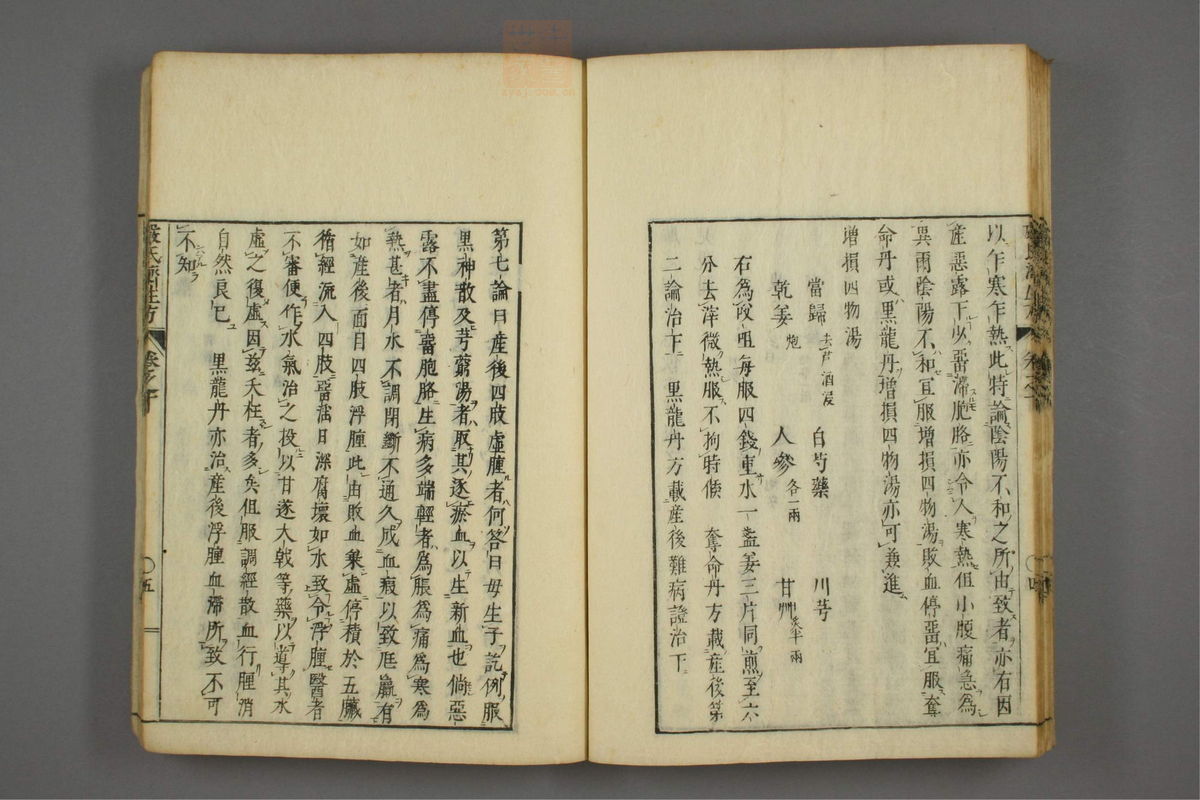 以乍寒乍熱此特論陰陽不和之所由致者亦有因
産惡露下以畱滯胞胳亦令人寒熱但小腹痛急為
異爾陰陽不和宜服増損四物湯敗血停畱宜服奪
命丹或黒龍丹増損四物湯亦可兼進
増損四物湯
當歸去芦酒浸 白芍藥 川芎
乾姜炮 人參各一兩 甘艸炙半兩
右為㕮咀毎服四錢重水一盞姜三片同煎至六
分去滓微熱服不拘時候 奪命丹方載産後第
二論治下 黒龍丹方載産後難病證治下
第七論曰産後四肢虛腫者何答曰母生子訖例服
黒神散及芎藭湯者取其逐瘀血以生新血也倘惡
露不盡停畱胞胳生病多端輕者為脹為痛為寒為
熱甚者月水不調閉斷不通久成血瘕以致尫羸有
如産後面目四肢浮腫此由敗血乗虛停積於五臟
循經流入四肢畱滛日深腐壞如水致令浮腫醫者
不審便作水氣治之投以甘遂大戟等藥以導其水
虛之復虛因玆夭枉者多矣但服調經散血行腫消
自然良已 黒龍丹亦治産後浮腫血滯所致不可
不知
嚴氏濟生方 卷之十 五